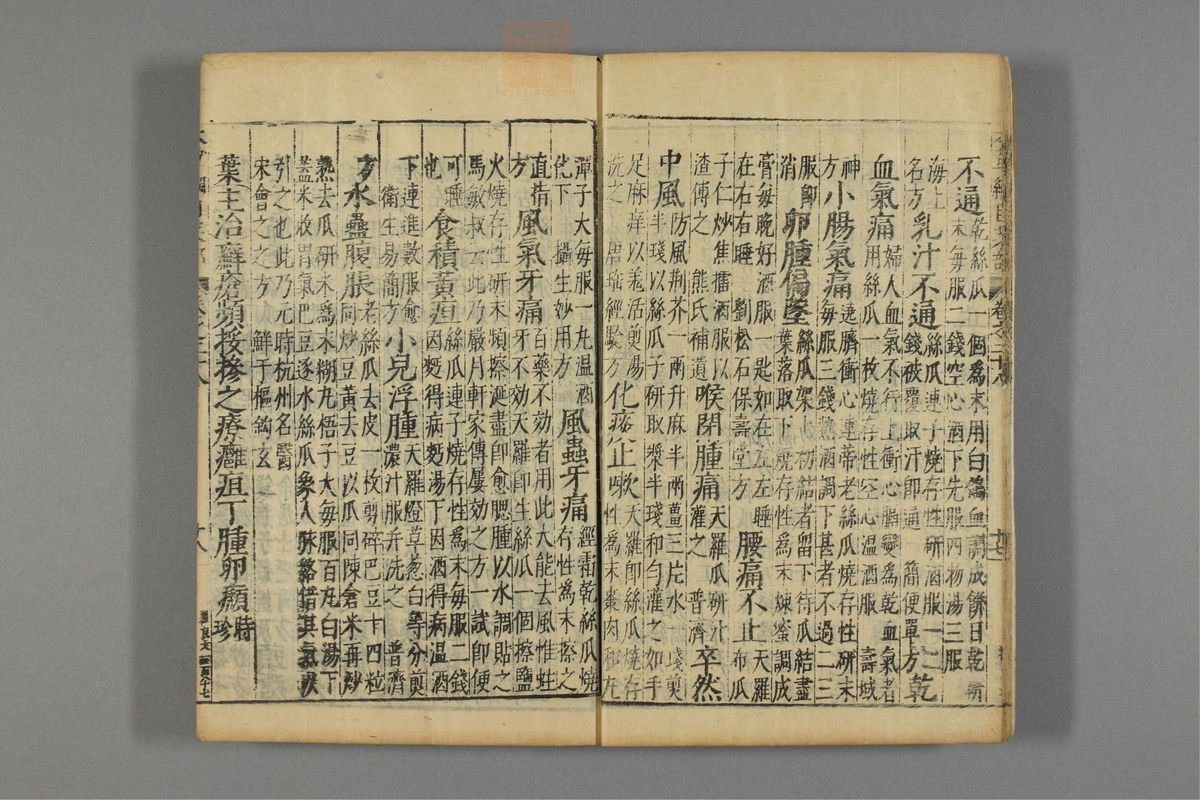 不通乾絲瓜一個為末用白鴿血調成餅日乾研
末每服二錢空心酒下先服四物湯三服
海上
名方乳汁不通絲瓜連子燒存性研酒服一二
錢被覆取汗即通 簡便單方乾
血氣痛婦人血氣不行上衝心膈變為乾血氣者
用絲瓜一枚燒存性空心溫酒服 壽域
神
方小腸氣痛遶臍衝心連蒂老絲瓜燒存性研末
每服三錢熱酒調下甚者不過二三
服即
消 卵腫偏墜絲瓜架上初結者留下待瓜結盡
葉落取下燒存性為末煉蜜調成
膏每晚好酒服一匙如在左左睡
在右右睡 劉松石保壽堂方腰痛不止天羅
布瓜
子仁炒焦擂酒服以
渣傅之 熊氏補遺喉閉腫痛天羅瓜研汁
灌之 普濟卒然
中風防風荆芥一兩升麻半兩薑三片水一琖煎
半琖以絲瓜子研取漿半琖和勻灌之如手
足麻痒以羌活煎湯
洗之 唐瑶經驗方化痰止嗽天羅即絲瓜燒存
性為末棗肉和丸
彈子大每服一丸溫酒
化下 攝生妙用方風蟲牙痛經霜乾絲瓜燒
存性為末擦之
直指
方 風氣牙痛百藥不効者用此大能去風惟蛀
牙不効天羅即生絲瓜一個擦鹽
火燒存性研末頻擦涎盡即愈腮腫以水調貼之
馬敏叔云此乃嚴月軒家傳屢効之方一試即便
可睡
也 食積黃疸絲瓜連子燒存性為末每服二錢
因麪得病麪湯下因酒得病溫酒
下連進數服愈
衛生易簡方小兒浮腫天羅燈草葱白等分煎
濃汁服并洗之 普濟
方水蠱腹脹老絲瓜去皮一枚剪碎巴豆十四粒
同炒豆黃去豆以瓜同陳倉米再炒
熟去瓜研米為末糊丸梧子大每服百丸白湯下
蓋米收胃氣巴豆逐水絲瓜象人脉絡借其氣以
引之也此乃元時杭州名醫
宋會之之方 鮮于樞鈎玄
葉主治癬瘡頻挼摻之療癰疽丁腫卵㿗時珍